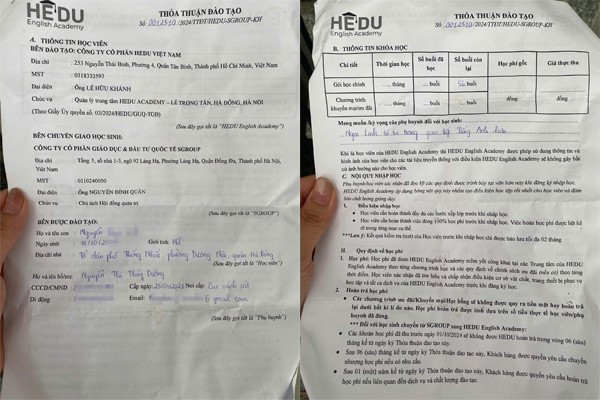 HEDU
English Academy
THỎA THUẬN ĐÀO TẠO
Số: 0012510/2024/TTĐT/HEDU-SGROUP-KH
A. THÔNG TIN HỌC VIÊN
BÊN ĐÀO TẠO: CÔNG TY CỔ PHẦN HEDU VIỆT NAM
Địa chỉ : 253 Nguyễn Thái Bình, Phường 4, Quận Tân Bình, Thành phố Hồ Chí Minh, Việt Nam
MST : 0318333593
Đại diện : Ông LÊ HỮU KHÁNH
Chức vụ : Quản lý trung tâm HEDU ACADEMY – LÊ TRỌNG TẤN, HÀ ĐÔNG, HÀ NỘI
(Theo Giấy Ủy quyền số: 03/2024/HEDU/GUQ-TGĐ)
(Sau đây gọi tắt là "HEDU English Academy")
BÊN CHUYỂN GIAO HỌC SINH:
CÔNG TY CỔ PHẦN GIÁO DỤC & ĐẦU TƯ QUỐC TẾ SGROUP
Địa chỉ : Tầng 5, số nhà 1-3, ngõ 92 Láng Hạ, Phường Láng Hạ, Quận Đống Đa, Thành phố Hà Nội, Việt Nam
MST : 0110240050
Đại diện : Ông NGUYỄN ĐÌNH QUÂN
Chức vụ : Chủ tịch Hội đồng quản trị
(Sau đây gọi tắt là "SGROUP")
BÊN ĐƯỢC ĐÀO TẠO:
Họ và tên con : Nguyễn
Ngày sinh Giới tính: Nữ
Địa chỉ nhà : Tổ dân phố Thống Nhất, phường Dương Nội, quận Hà Đông
(Sau đây gọi tắt là "Học viên")
Họ và tên bố/mẹ: Nguyễn Thị Thùy Dương
CCCD/CMND : Cấp ngày: Nơi cấp: Cục cảnh sát
Di động : Email: @gmail.com
(Sau đây gọi tắt là "Phụ huynh")
HEDU
English Academy
THỎA THUẬN ĐÀO TẠO
Số: 0012510/2024/TTĐT/HEDU-SGROUP-KH
B. THÔNG TIN KHÓA HỌC
Chi tiết Thời gian học Số buổi đã học Số buổi còn lại Học phí gốc Giá thực thu
Gói học chính ... tháng ... buổi 56 buổi
Chương trình khuyến mại/ưu đãi ... tháng ... buổi ... buổi đồng đồng
Mong muốn/kỳ vọng của phụ huynh đối với học sinh:
Ngọc Linh tự tin trong giao tiếp Tiếng Anh
Khi là học viên của HEDU English Academy thì HEDU English Academy được phép sử dụng thông tin và
hình ảnh của học viên cho các tài liệu truyền thông với điều kiện HEDU English Academy sẽ không gây bất
cứ ảnh hưởng nào cho học viên.
C. NỘI QUY NHẬP HỌC
Phụ huynh/học viên xác nhận đã đọc kỹ các quy định được trình bày tại văn bản này khi đăng ký nhập học.
HEDU English Academy áp dụng bảng nội quy này nhằm tạo điều kiện học tập tốt nhất cho học viên và đảm
bảo chất lượng giảng dạy.
I. Điều kiện nhập học
• Học viên cần hoàn thành đầy đủ các bước xếp lớp trước khi nhập học.
• Học viên cần hoàn thành việc đóng 100% học phí trước khi nhập học. Việc hoãn học phí được liệt kê
rõ trong từng mục cụ thể.
***Lưu ý: Kết quả kiểm tra (test) của Học viên trước khi nhập học chỉ được bảo lưu tối đa 02 tháng.
II. Quy định về học phí
1. Học phí: Học phí đã được HEDU English Academy niêm yết công khai tại các Trung tâm của HEDU
English Academy theo từng chương trình học và các quy định về chính sách ưu đãi (nếu có) theo từng
thời điểm. Học viên xác nhận đã tìm hiểu và chấp nhận điều kiện cơ sở vật chất, trang thiết bị phục vụ
học tập và tất cả dịch vụ của HEDU English Academy trước khi đăng ký học.
2. Hoàn trả học phí:
• Các chương trình ưu đãi/Khuyến mại/Học bổng sẽ không được quy ra tiền mặt hay hoàn trả
lại dưới bất kì lí do nào. Học phí hoàn trả được tính dựa trên số tiền thực tế học viên/phụ
huynh đã đóng.
*** Đối với học sinh chuyển từ SGROUP sang HEDU English Academy:
• Các khoản học phí đã thu trước ngày 01/10/2024 sẽ không được HEDU hoàn trả trong vòng 06 (sáu)
tháng kể từ ngày ký Thỏa thuận đào tạo này.
• Sau 06 (sáu) tháng kể từ ngày ký Thỏa thuận đào tạo này, Khách hàng được quyền yêu cầu chuyển
nhượng học phí nếu có nhu cầu.
• Sau 01 (một) năm kể từ ngày ký Thỏa thuận đào tạo này, Khách hàng được quyền yêu cầu hoàn trả
học phí nếu liên quan đến dịch vụ và chất lượng đào tạo.